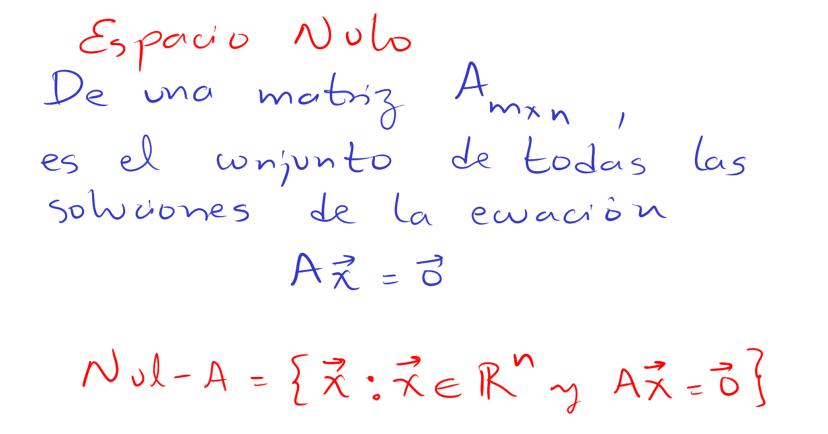 Espacio Nulo
De una matriz A_{m×n},
es el conjunto de todas las
soluciones de la ecuación
A\vec{x} = \vec{0}
Nul-A = {\vec{x} : \vec{x} ∈ ℝ^n y A\vec{x} = \vec{0}}